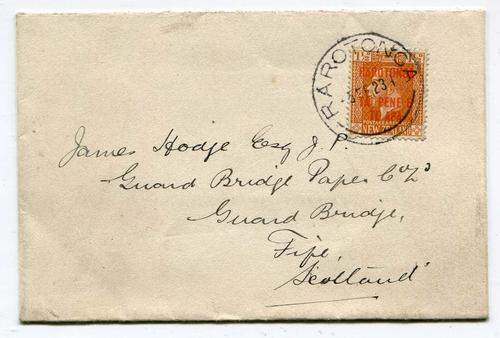 RAROTONGA
1½
RAROTONGA
TA PENE E
POSTAGE & REVENUE
NEW ZEALAND
James Hodge Esq J. P.
Guard Bridge Paper Co Ld
Guard Bridge,
Fife,
Scotland